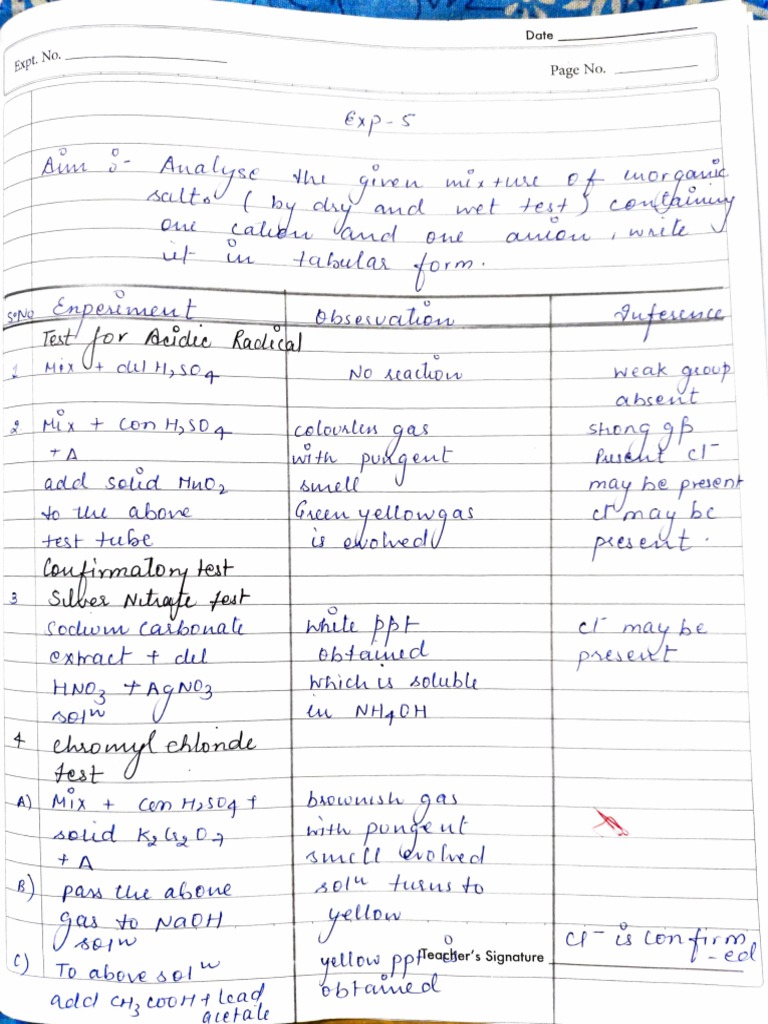 Date
Expt. No.
Page No.
Exp-5
Aim :- Analyse the given mixture of inorganic
salts (by dry and wet test) containing
one cation and one anion, write
it in tabular form.
S.No Experiment Observation Inference
Test for Acidic Radical
1 Mix + dil H2SO4 No reaction weak group
absent
2 Mix + con H2SO4 colourless gas strong gp
+ Δ with pungent Present Cl-
add solid MnO2 smell may be present
to the above Green yellow gas Cl- may be
test tube is evolved present.
Confirmatory test
3 Silver Nitrate test
sodium carbonate white ppt Cl- may be
extract + dil obtained present
HNO3 + AgNO3 which is soluble
soln in NH4OH
4 Chromyl chloride
test
A) Mix + con H2SO4 + brownish gas
solid K2Cr2O7 with pungent
+ Δ smell evolved
B) pass the above soln turns to
gas to NaOH yellow
soln Cl- is confirm
-ed
C) To above soln yellow ppt is Teacher's Signature
add CH3COOH + lead obtained
acetate